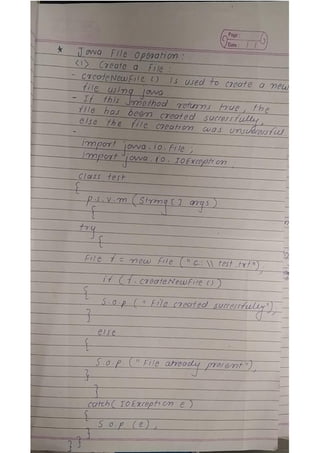 Page:
Date: / /
* Java File operation:
<1> Create a File:
- createNewFile () is used to create a new
file using java
- If this method returns true, the
file has been created successfully,
else the file creation was unsuccessful
-
import java.io.File;
import java.io.IOException
class test
{
p.s.v.m (String [] args)
{
try
{
File f = new File ("c:\\test.txt");
if (f.createNewFile ())
{
S.o.p ("File created successfully");
}
else
{
S.o.p. ("File already present");
}
}
catch( IOException e)
{
S.o.p (e);
}
} }